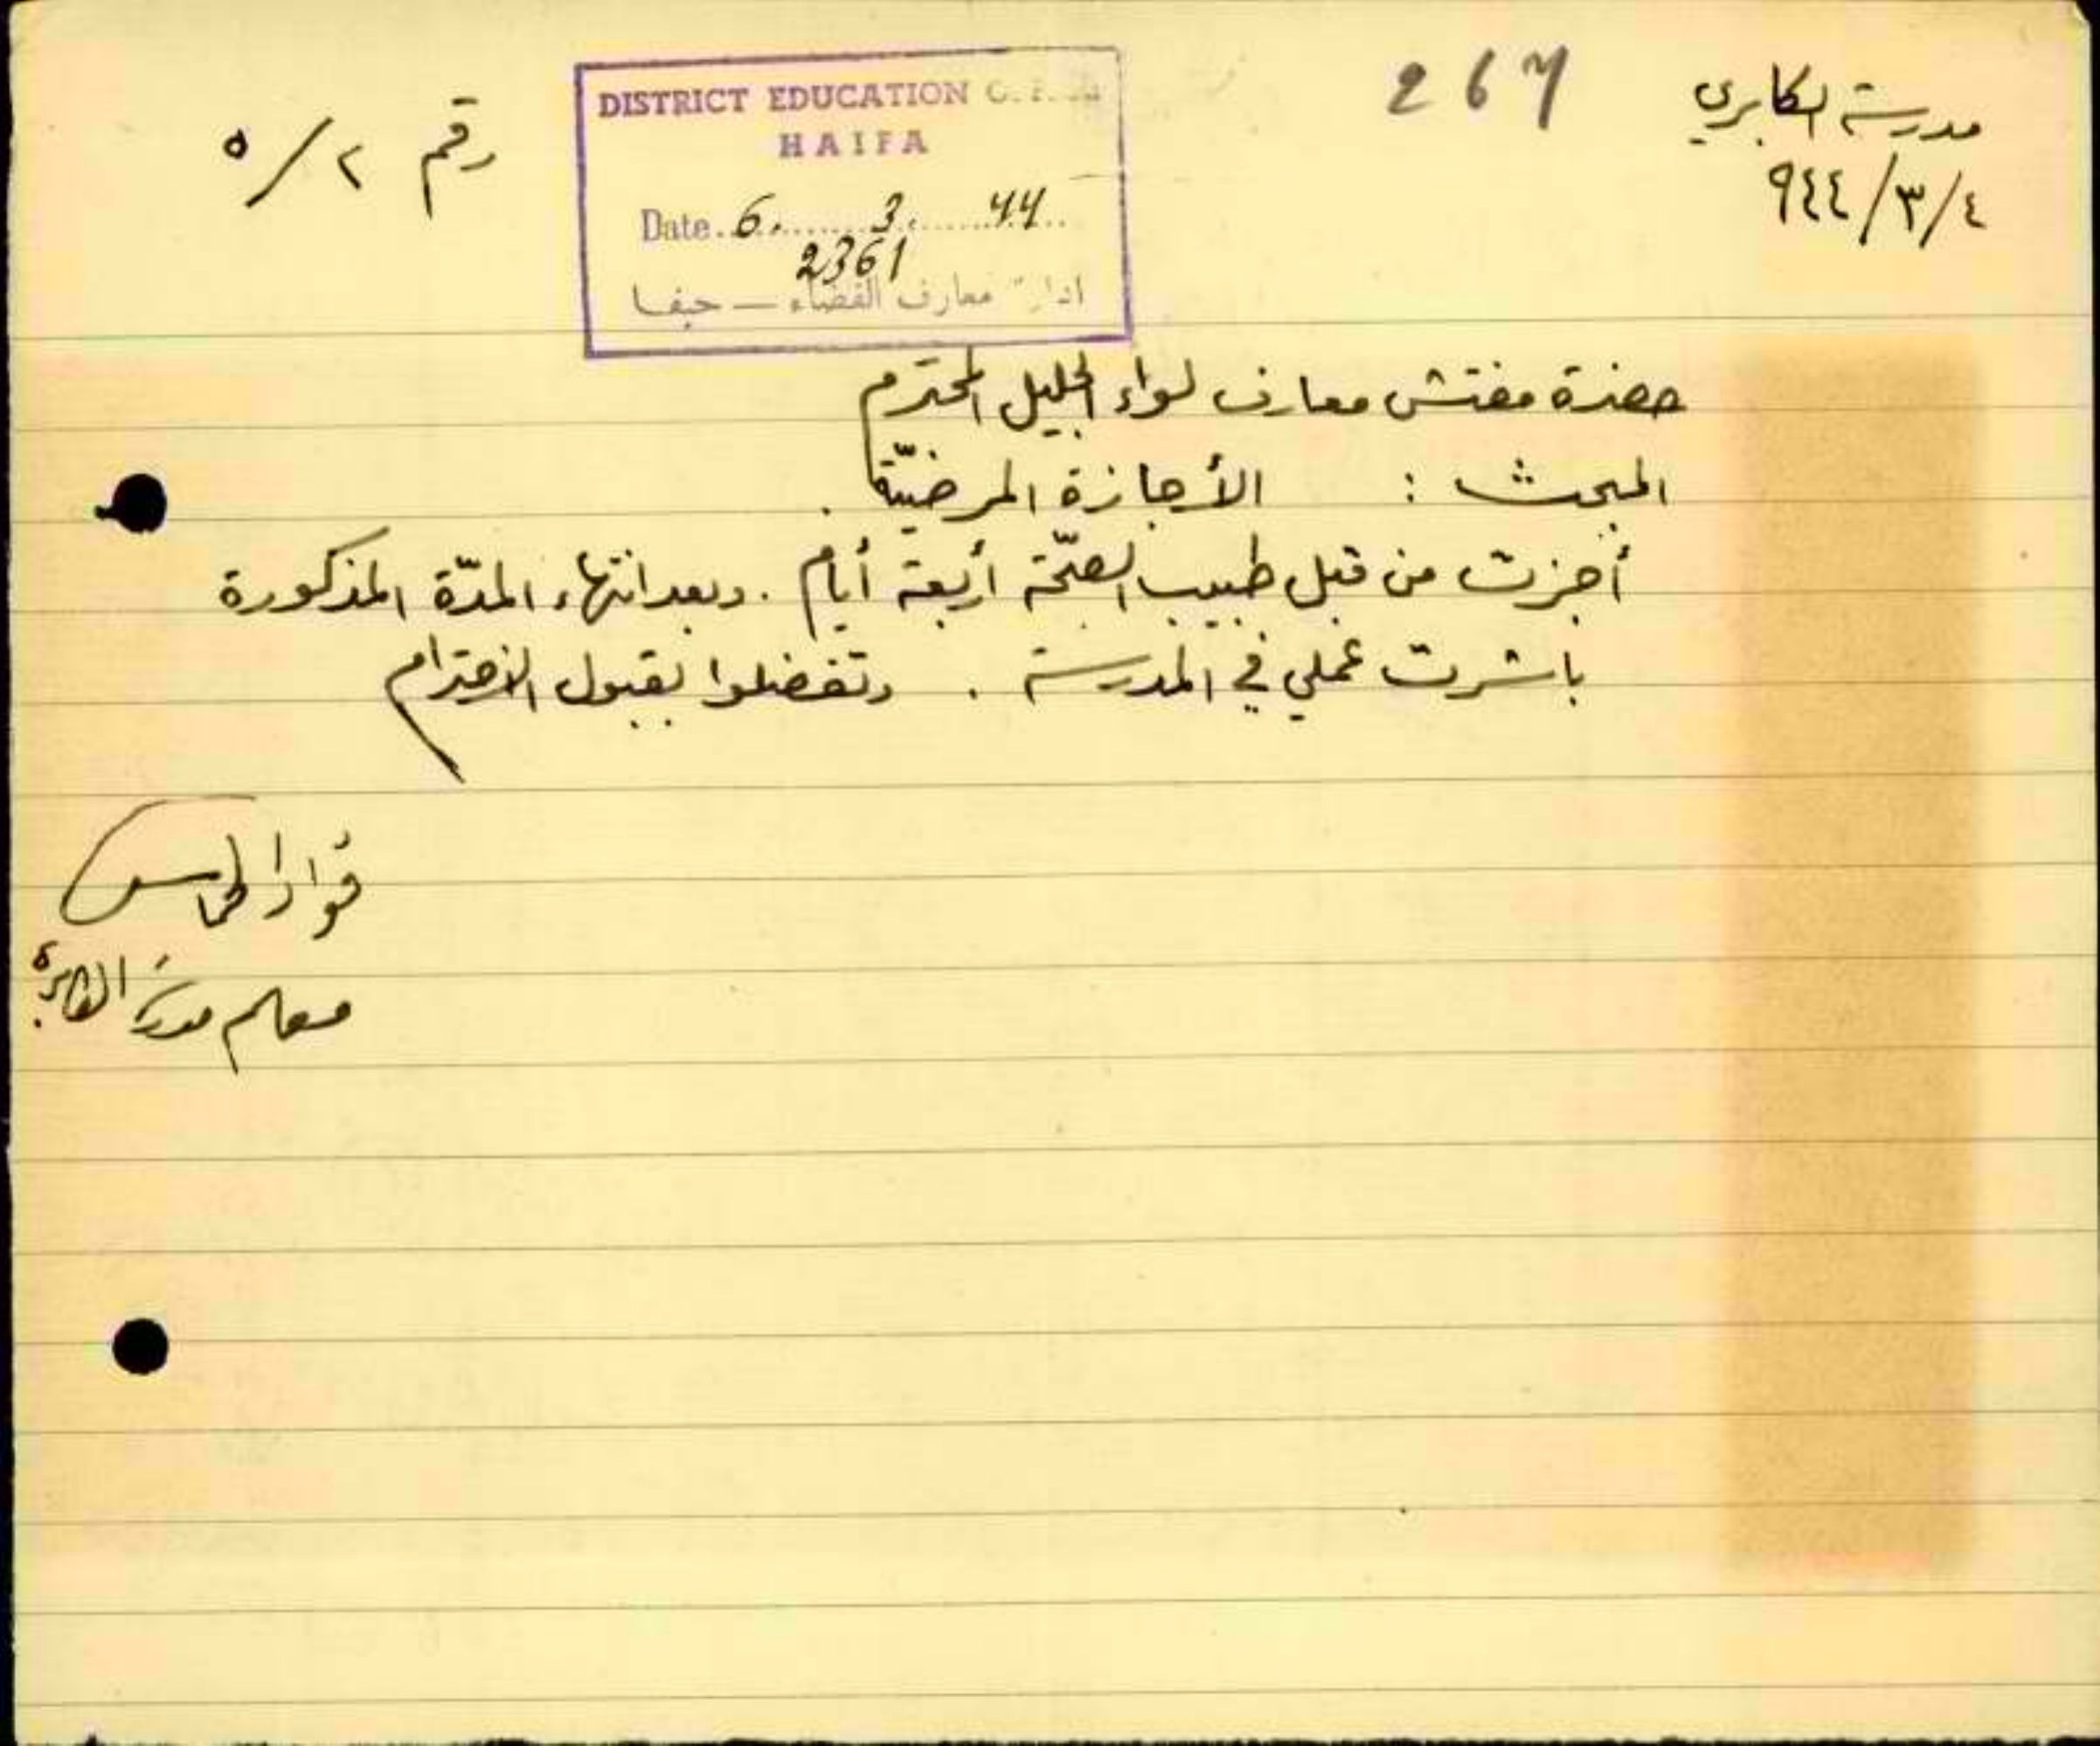 مدرسة الكابري
٤/٣/٩٤٤
267
رقم ٢/٥
DISTRICT EDUCATION
HAIFA
Date. 6. 3. 44
2361
ادارة معارف القضاء — حيفا
حضرة مفتش معارف لواء الجليل المحترم
المبحث : الأجازة المرضيّة .
أجزت من قبل طبيب الصحّة أربعة أيام . وبعد انتهاء المدّة المذكورة
باشرت عملي في المدرسة . وتفضلوا بقبول الاحترام
فؤاد
معلم مدرسة